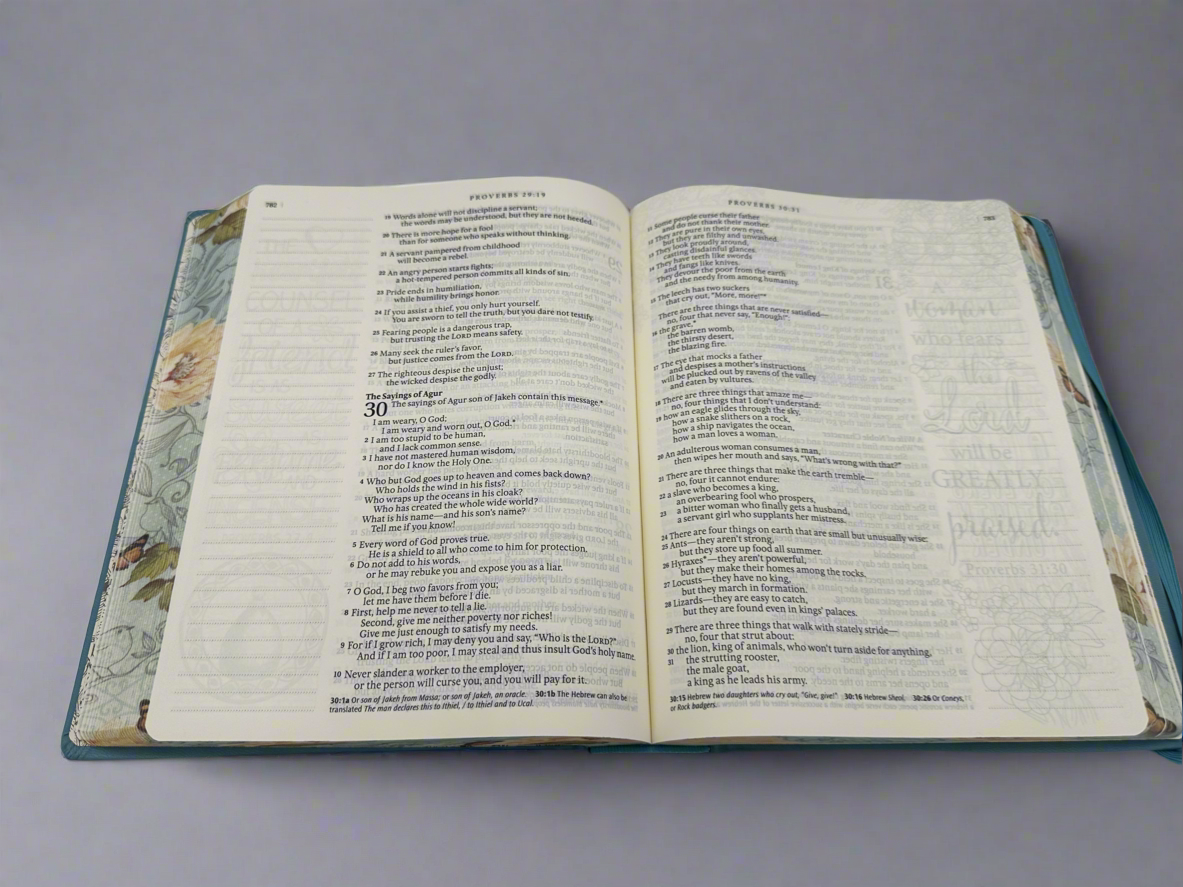 782
PROVERBS 29:19
19 Words alone will not discipline a servant;
the words may be understood, but they are not heeded.
20 There is more hope for a fool
than for someone who speaks without thinking.
21 A servant pampered from childhood
will become a rebel.
22 An angry person starts fights;
a hot-tempered person commits all kinds of sin.
23 Pride ends in humiliation,
while humility brings honor.
24 If you assist a thief, you only hurt yourself.
You are sworn to tell the truth, but you dare not testify.
25 Fearing people is a dangerous trap,
but trusting the LORD means safety.
26 Many seek the ruler's favor,
but justice comes from the LORD.
27 The righteous despise the unjust;
the wicked despise the godly.
The Sayings of Agur
30 The sayings of Agur son of Jakeh contain this message.*
I am weary, O God;
I am weary and worn out, O God.*
2 I am too stupid to be human,
and I lack common sense.
3 I have not mastered human wisdom,
nor do I know the Holy One.
4 Who but God goes up to heaven and comes back down?
Who holds the wind in his fists?
Who wraps up the oceans in his cloak?
Who has created the whole wide world?
What is his name—and his son's name?
Tell me if you know!
5 Every word of God proves true.
He is a shield to all who come to him for protection.
6 Do not add to his words,
or he may rebuke you and expose you as a liar.
7 O God, I beg two favors from you;
let me have them before I die.
8 First, help me never to tell a lie.
Second, give me neither poverty nor riches!
Give me just enough to satisfy my needs.
9 For if I grow rich, I may deny you and say, “Who is the LORD?”
And if I am too poor, I may steal and thus insult God's holy name.
10 Never slander a worker to the employer,
or the person will curse you, and you will pay for it.
30:1a Or son of Jakeh from Massa; or son of Jakeh, an oracle. 30:1b The Hebrew can also be
translated The man declares this to Ithiel, / to Ithiel and to Ucal.
PROVERBS 30:31
783
11 Some people curse their father
and do not thank their mother.
12 They are pure in their own eyes,
but they are filthy and unwashed.
13 They look proudly around,
casting disdainful glances.
14 They have teeth like swords
and fangs like knives.
They devour the poor from the earth
and the needy from among humanity.
15 The leech has two suckers
that cry out, “More, more!”*
There are three things that are never satisfied—
no, four that never say, “Enough!”:
16 the grave,*
the barren womb,
the thirsty desert,
the blazing fire.
17 The eye that mocks a father
and despises a mother's instructions
will be plucked out by ravens of the valley
and eaten by vultures.
18 There are three things that amaze me—
no, four things that I don't understand:
19 how an eagle glides through the sky,
how a snake slithers on a rock,
how a ship navigates the ocean,
how a man loves a woman.
20 An adulterous woman consumes a man,
then wipes her mouth and says, “What's wrong with that?”
21 There are three things that make the earth tremble—
no, four it cannot endure:
22 a slave who becomes a king,
an overbearing fool who prospers,
23 a bitter woman who finally gets a husband,
a servant girl who supplants her mistress.
24 There are four things on earth that are small but unusually wise:
25 Ants—they aren't strong,
but they store up food all summer.
26 Hyraxes*—they aren't powerful,
but they make their homes among the rocks.
27 Locusts—they have no king,
but they march in formation.
28 Lizards—they are easy to catch,
but they are found even in kings' palaces.
29 There are three things that walk with stately stride—
no, four that strut about:
30 the lion, king of animals, who won't turn aside for anything,
31 the strutting rooster,
the male goat,
a king as he leads his army.
30:15 Hebrew two daughters who cry out, “Give, give!” 30:16 Hebrew Sheol. 30:26 Or Coneys,
or Rock badgers.
COUNSEL
woman
who fears
the
Lord
will be
GREATLY
praised.
Proverbs 31:30